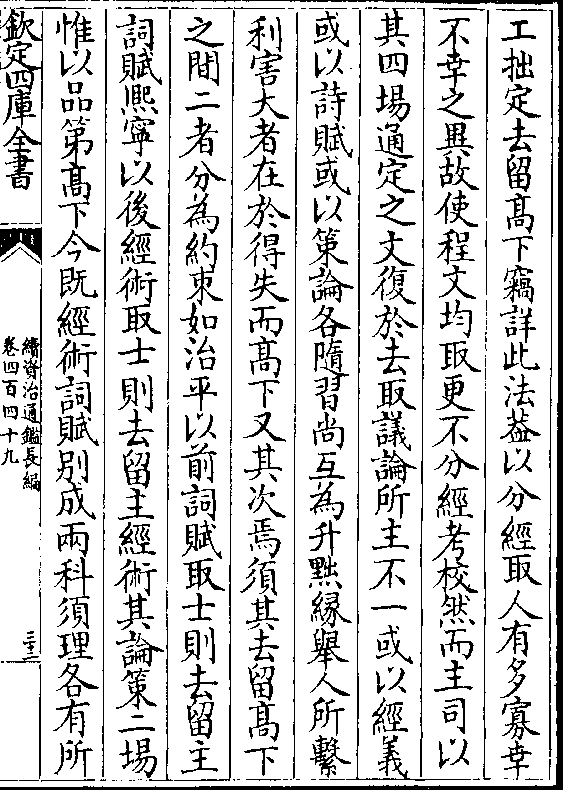 工拙定去留髙下竊詳此法葢以分經取人有多寡幸
不幸之異故使程文均取更不分經考校然而主司以
其四場通定之文復於去取議論所主不一或以經義
或以詩賦或以策論各隨習尚互為升黜縁舉人所繫
利害大者在於得失而髙下又其次焉須其去留髙下
之間二者分為約束如治平以前詞賦取士則去留主
詞賦熈寧以後經術取士則去留主經術其論策二場
惟以品第髙下今既經術詞賦别成兩科須理各有所
欽定四庫全書
續資治通鑑長編
卷四百四十九
三十三